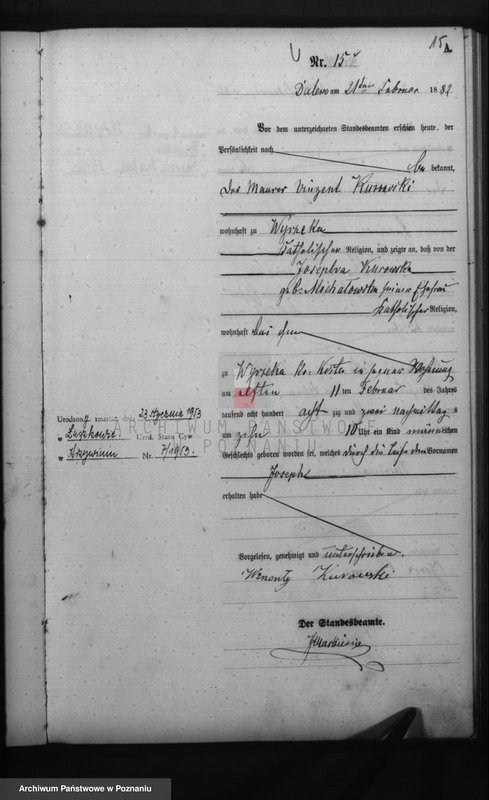 15
A.
Nr. 15
am 21ten Februar 1882
Vor dem unterzeichneten Standesbeamten erschien heute, der
Persönlichkeit nach
bekannt,
Der Maurer Vinzent Kurowski
wohnhaft zu Wyrzeka
katholischer Religion, und zeigte an, daß von der
Josepha Kurowska
geb. Michalowska seiner Ehefrau
katholischer Religion,
wohnhaft bei ihm
zu Wyrzeka Kr. Kosten in seiner Wohnung
am elften 11ten Februar des Jahres
tausend acht hundert acht zig und zwei Nachmittags
um zehn 10 Uhr ein Kind männlichen
Geschlechts geboren worden sei, welches durch die Taufe den Vornamen
Joseph
erhalten habe
Vorgelesen, genehmigt und unterschrieben.
Kurowski
Der Standesbeamte.
zmarł dnia 23 stycznia 1913
w Urzd. Stanu Cyw
w Krzywiniu Nr. 7/1913.
ARCHIWUM PAŃSTWOWE
W POZNANIU
Archiwum Państwowe w Poznaniu